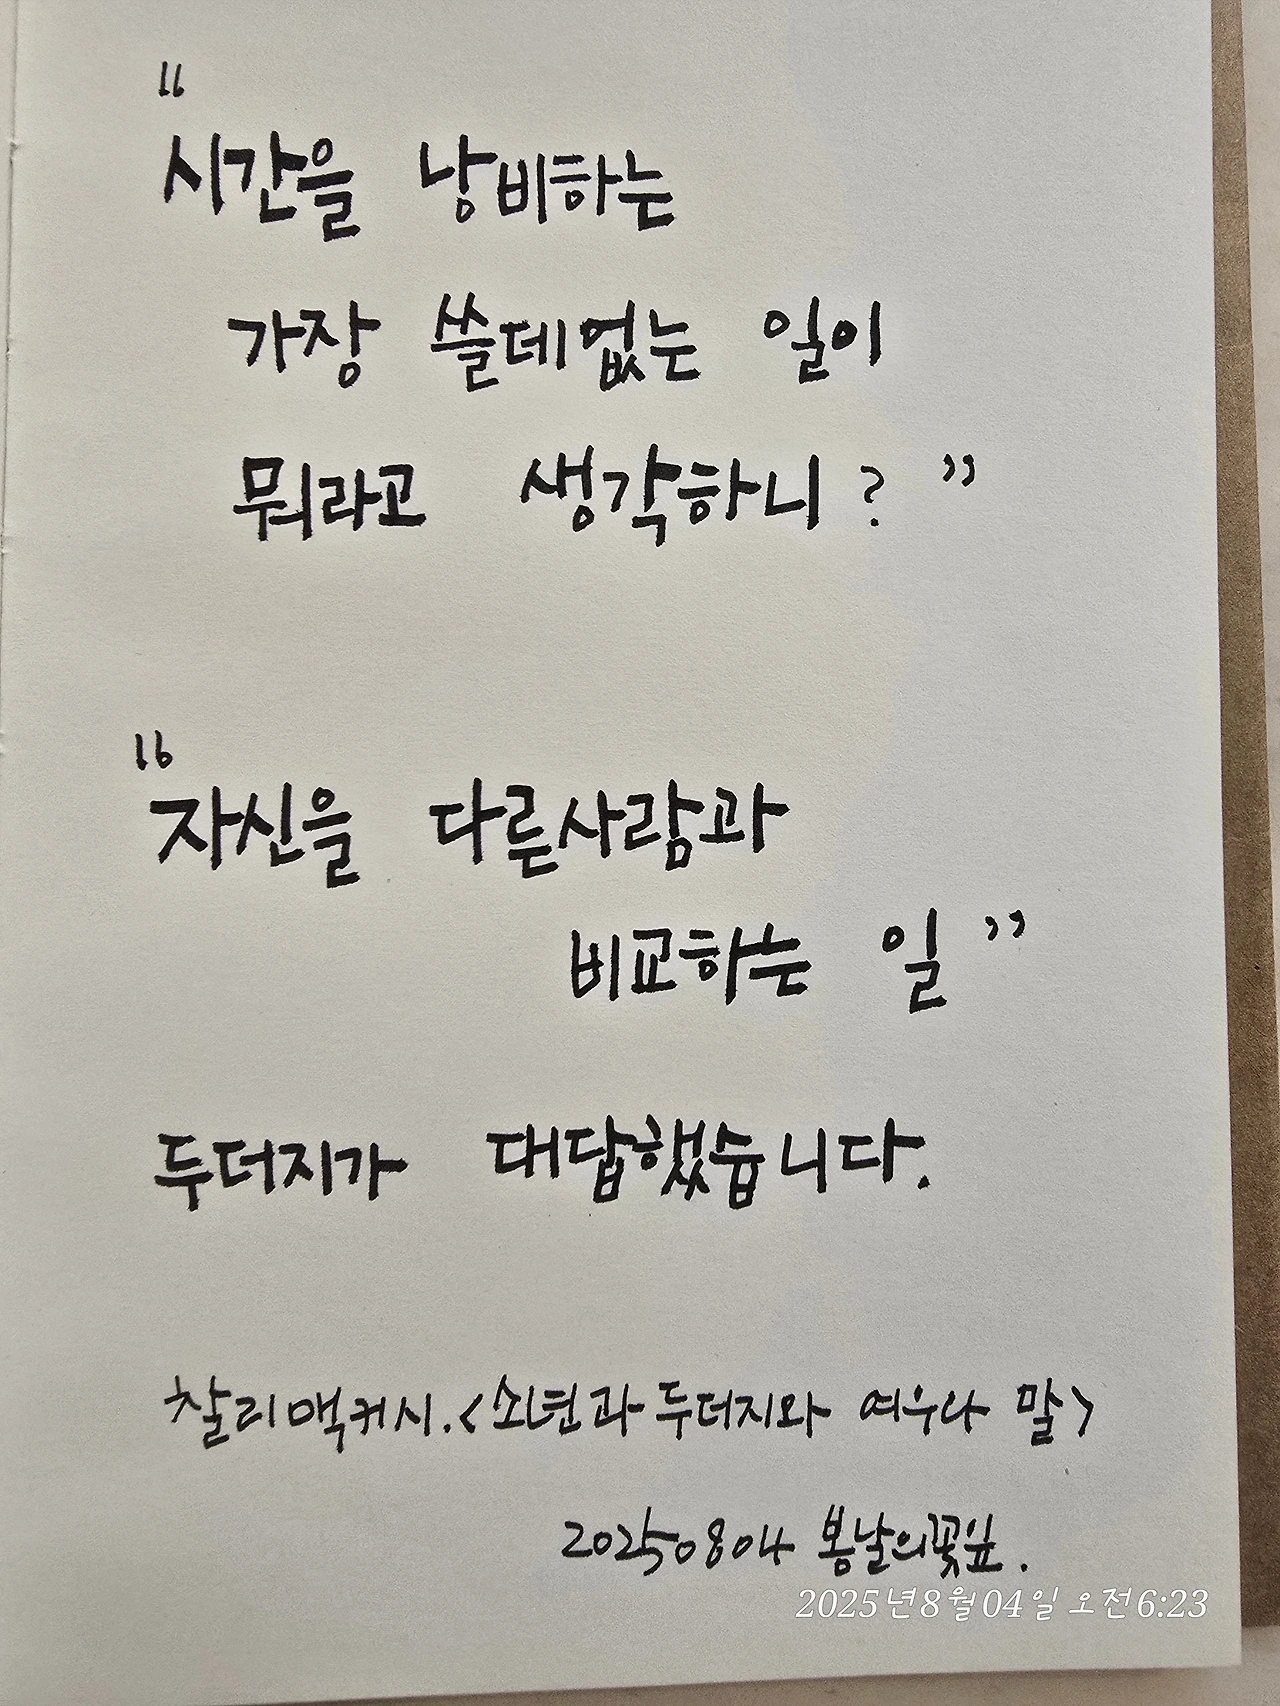 “
시간을 낭비하는
가장 쓸데없는 일이
뭐라고 생각하니? ”
“
자신을 다른사람과
비교하는 일 ”
두더지가 대답했습니다.
찰리맥커시.<소년과 두더지와 여우나 말>
20250804 봄날의꽃잎.
2025년8월04일 오전6:23